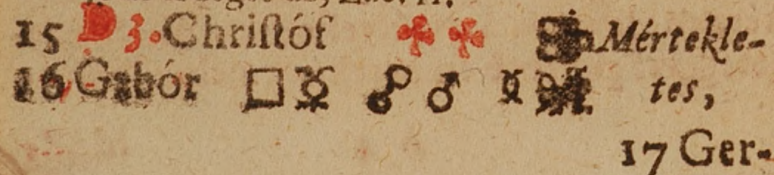 15 D 3. Chriſtóf ✤ ✤ Mértekle-
16 Gábór □ ☿ ☍ ♂ ☿ tes,
17 Ger-